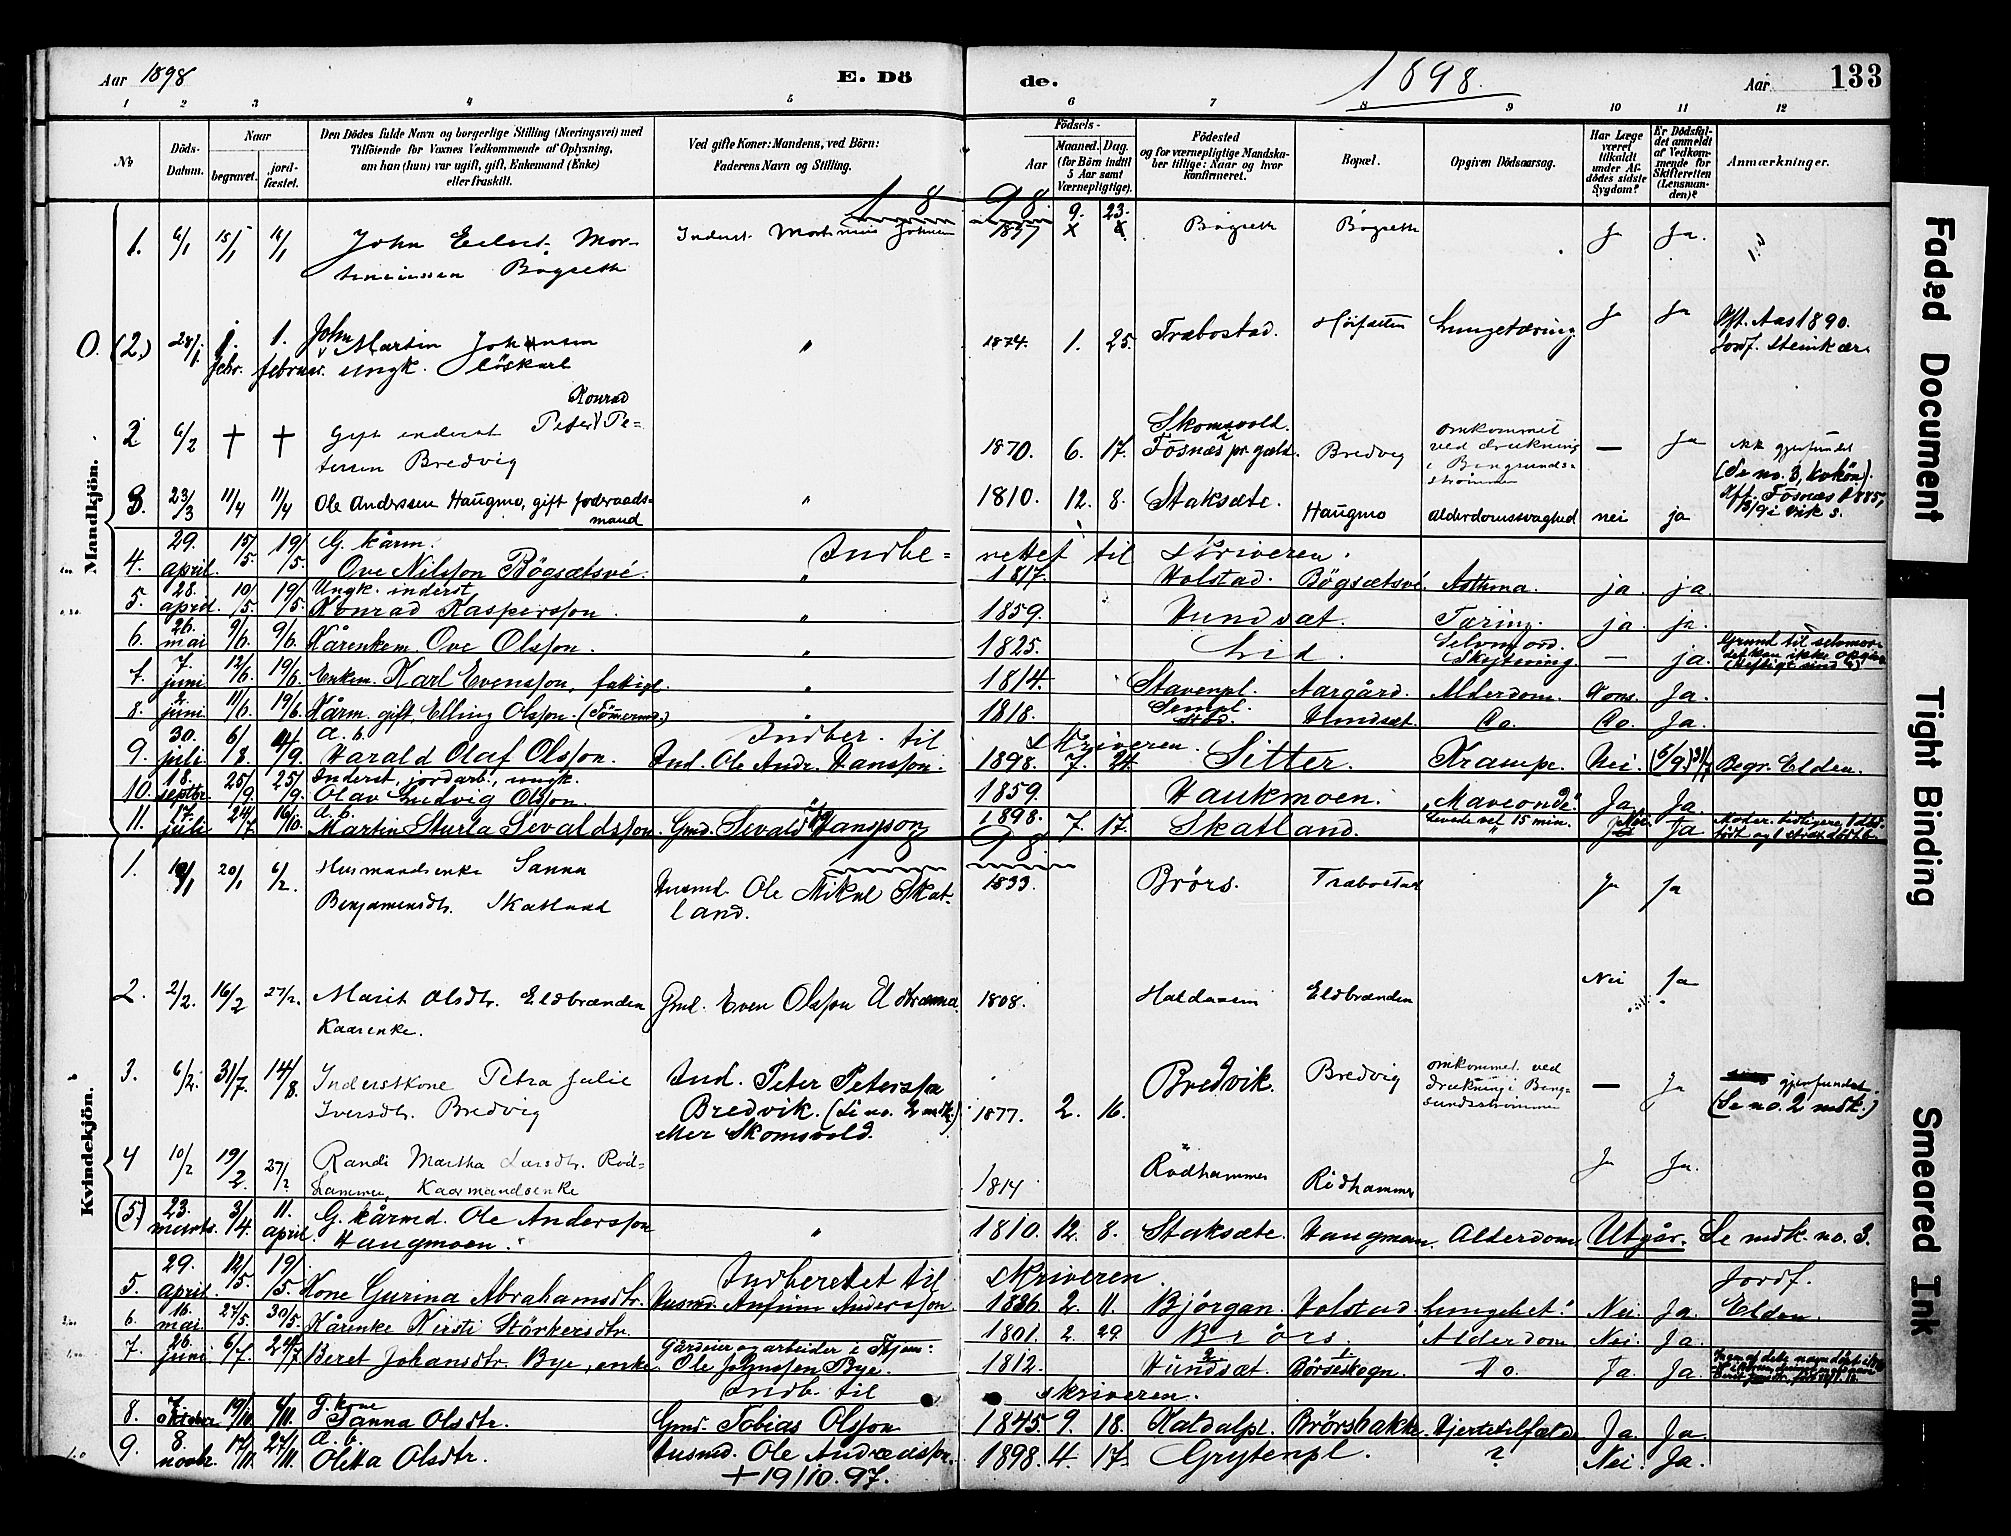 Aar 1898 E. Dö de. 1898. Aar 133
1 2 3 4 5 6 7 8 9 10 11 12
No
Döds-Datum.
Naar
begravet.
jord-fæstet.
Den Dödes fulde Navn og borgerlige Stilling (Næringsvei) med
Tilföiende for Voxnes Vedkommende af Oplysning,
om han (hun) var ugift, gift, Enkemand (Enke)
eller fraskilt.
Ved gifte Koner: Mandens, ved Börn:
Faderens Navn og Stilling.
Födsels-
Aar
Maaned. Dag.
(for Börn indtil
5 Aar samt
Værnepligtige).
Födested
og for værnepligtige Mandska-
ber tillige: Naar og hvor
konfirmeret.
Bopæl.
Opgiven Dödsaarsag.
Har Læge
været
tilkaldt
under Af-
dödes sidste
Sygdom?
Er Dödsfal-
det anmeldt
af Vedkom-
mende for
Skifteretten
(Lensman-
den)?
Anmærkninger.
1898
Mandkjön.
1. 6/1 15/1 John Mor- Inderst 1897 9. 23. Bögseth Bögseth Ja Ja.
Bögseth
O. (2.) 28/1. 1. febr. 1. februar. John Martin Johnsen " 1874. 1. 25. Træbostad. Lungetæring Ja Ja Kft. Aas 1890.
ungk. löskarl Jordf. Steinkær.
Konrad
2 6/2 + + Gift inderst Peter Pe- 1870. 6. 17. Skomsvold. i Fosnæs pr.gæld. Bredvig omkommet ved drukning i Bangsunds-strömmen — Ja ikk gjenfundet
tersen Bredvig (Se no. 3, kvkön).
3. 23/3 11/4 11/4 Ole Anderssen Haugmo, gift föderaads- mand " 1810. 12. 8. Staksæte. Haugmo Alderdomssvaghed nei ja Kft. Fosnæs 1885,
29. 15/5. 19/5. G. kårm. Indbe- rettet til skriveren.
4. april. Ove Nilsson Bögsætsvé. " 1817. Holstad. Bögsætsvé. Asthma ja. ja.
28. 10/5 19/5. Ungk. inderst
5. april. Konrad Kaspersson. " 1859. Hundsæt. Tæring. ja. ja.
6. 26. mai 9/6. 9/6. Kårenkem. Ove Olsson. " 1825. Lid. Selvmord. Skytning — ja. Grund til selvmor-
det kan ikke
7. 7. juni 12/6 19/6 Enkem. Karl Evensson, fatigl. " 1814. Stavenpl. Aargård. Alderdom. Kons. Ja.
8. 2. juni 11/6. 19/6. Kårm. gift, Elling Olsson. (Tömermd.) " 1818. Sempl. Hundsæt. Do. Do. Ja.
30. a. b. Indber. til skriveren.
9. juli 6/8. 4/9. Harald Olaf Olsson. Ind. Ole Andr. Hansson. 1898. 7. 24. Sitter. Krampe. Nei. Begr. Elden.
18. 25/9 25/9. Inderst, jordarb., ungk.
10. septbr Olav Ludvig Olsson. " 1859. Haukmoen. Ja Ja
17. a. b.
11. juli 24/7. 16/10. Martin Sturla Sevaldsson. Gmd. Sevald Hansson 1898. 7. 17. Skatland. Levede vel 15 min. Nei. Ja
1898
Kvindekjön.
1. 20/1 6/2. Husmandsenke Sanna Husmd. Ole Mikal Skat- 1833 Brörs. Træbostad Ja Ja
Benjaminsdtr. Skatland land.
2. 2/2. 16/2 27/2. Marit Olsdtr. Eldbrænden Gmd. Even Olsson 1808. Eldbrænden Nei Ja
Kaarenke.
3. 6/2. 31/7. 14/8. Inderstkone Petra Julie Ind. Peter Petersson 1877. 2. 16. Bredvik. Bredvig omkommet ved drukning i Bang-sundsströmmen — Ja gjenfundet
Iversdtr. Bredvig Bredvik. (Se no. 2 mdk.) (Se no. 2 mdk.)
eller Skomsvold.
4 10/2 19/2. 27/2 Randi Martha Larsdtr. Röd- 1814 Rödhammer Rödhammer Ja Ja.
hammer, Kaarmandsenke
(5.) 23. marts. 3/4. 11. april. G. kårmd. Ole Andersson " 1810. 12. 8. Staksæte. Haugmoen. Alderdom. Utgår. Se mdk. no. 3.
Haugmoen.
29. 12/5. 19/5. Indberettet til skriveren. Jordf.
5. april. Kone Gurina Abrahamsdtr. Husmd. Anfinn Andersson 1836. 2. 11. Björgan. Holstad. Lungebet. Nei. Ja. Elden.
6. 16. mai 27/5. 30/5. Kårenke Kirsti Störkersdtr. 1801. 2. 29. Brörs. Alderdom Nei. Ja.
7. 26. juni 6/7. 24/7 Beret Johansdtr. Bye, enke Gårdeier og arbeider i
Ole Johnssen Bye. 1812. Hundsæt. Börseskogn. Do. Ja. Ja.
Indb. til skriveren.
8. 7. oktober 19/10 6/11. G. kone Sanna Olsdtr. Gmd. Tobias Olsson 1845. 9. 18. Kaldalpl. Brörsbakke Hjertetilfælde Ja. Ja.
9. 8. novbr 17/11 27/11. a. b. Oletta Olsdtr. Husmd. Ole Andreassen. 1898. 4. 17. Grytenpl. ? Nei. Ja.
+ 19/10. 97.
Faded Document
Tight Binding
Smeared Ink